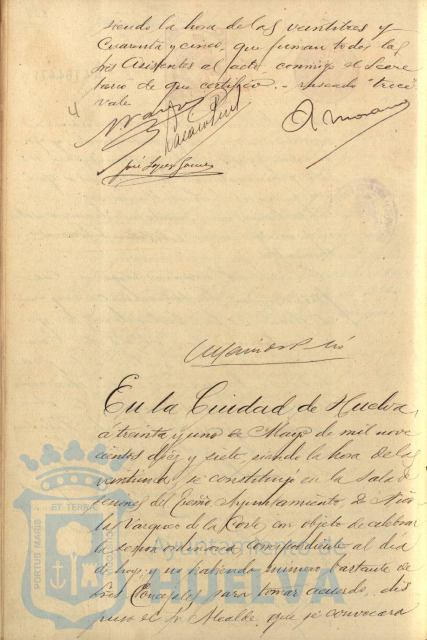 siendo la hora de las veintitres y
cuarenta y cinco, que firman todos los
Sres Asistentes al acto conmigo el Secre
tario de que certifico. - raspado "trece"
vale
A Moreno
José López Gómez
En la Ciudad de Huelva,
á treinta y uno de Mayo de mil nove
cientos diez y siete, siendo la hora de las
veintiuna, se constituyó en la Sala de
sesiones del Excmo Ayuntamiento
las Vazquez de la Corte con objeto de celebrar
la sesion ordinaria correspondiente al dia
de hoy; y no habiendo número bastante de
Sres Concejales para tomar acuerdo, dis
puso el Sr. Alcalde, que se convocara
PORTUS MARIS ET TERRÆ
Ayuntamiento de
HUELVA